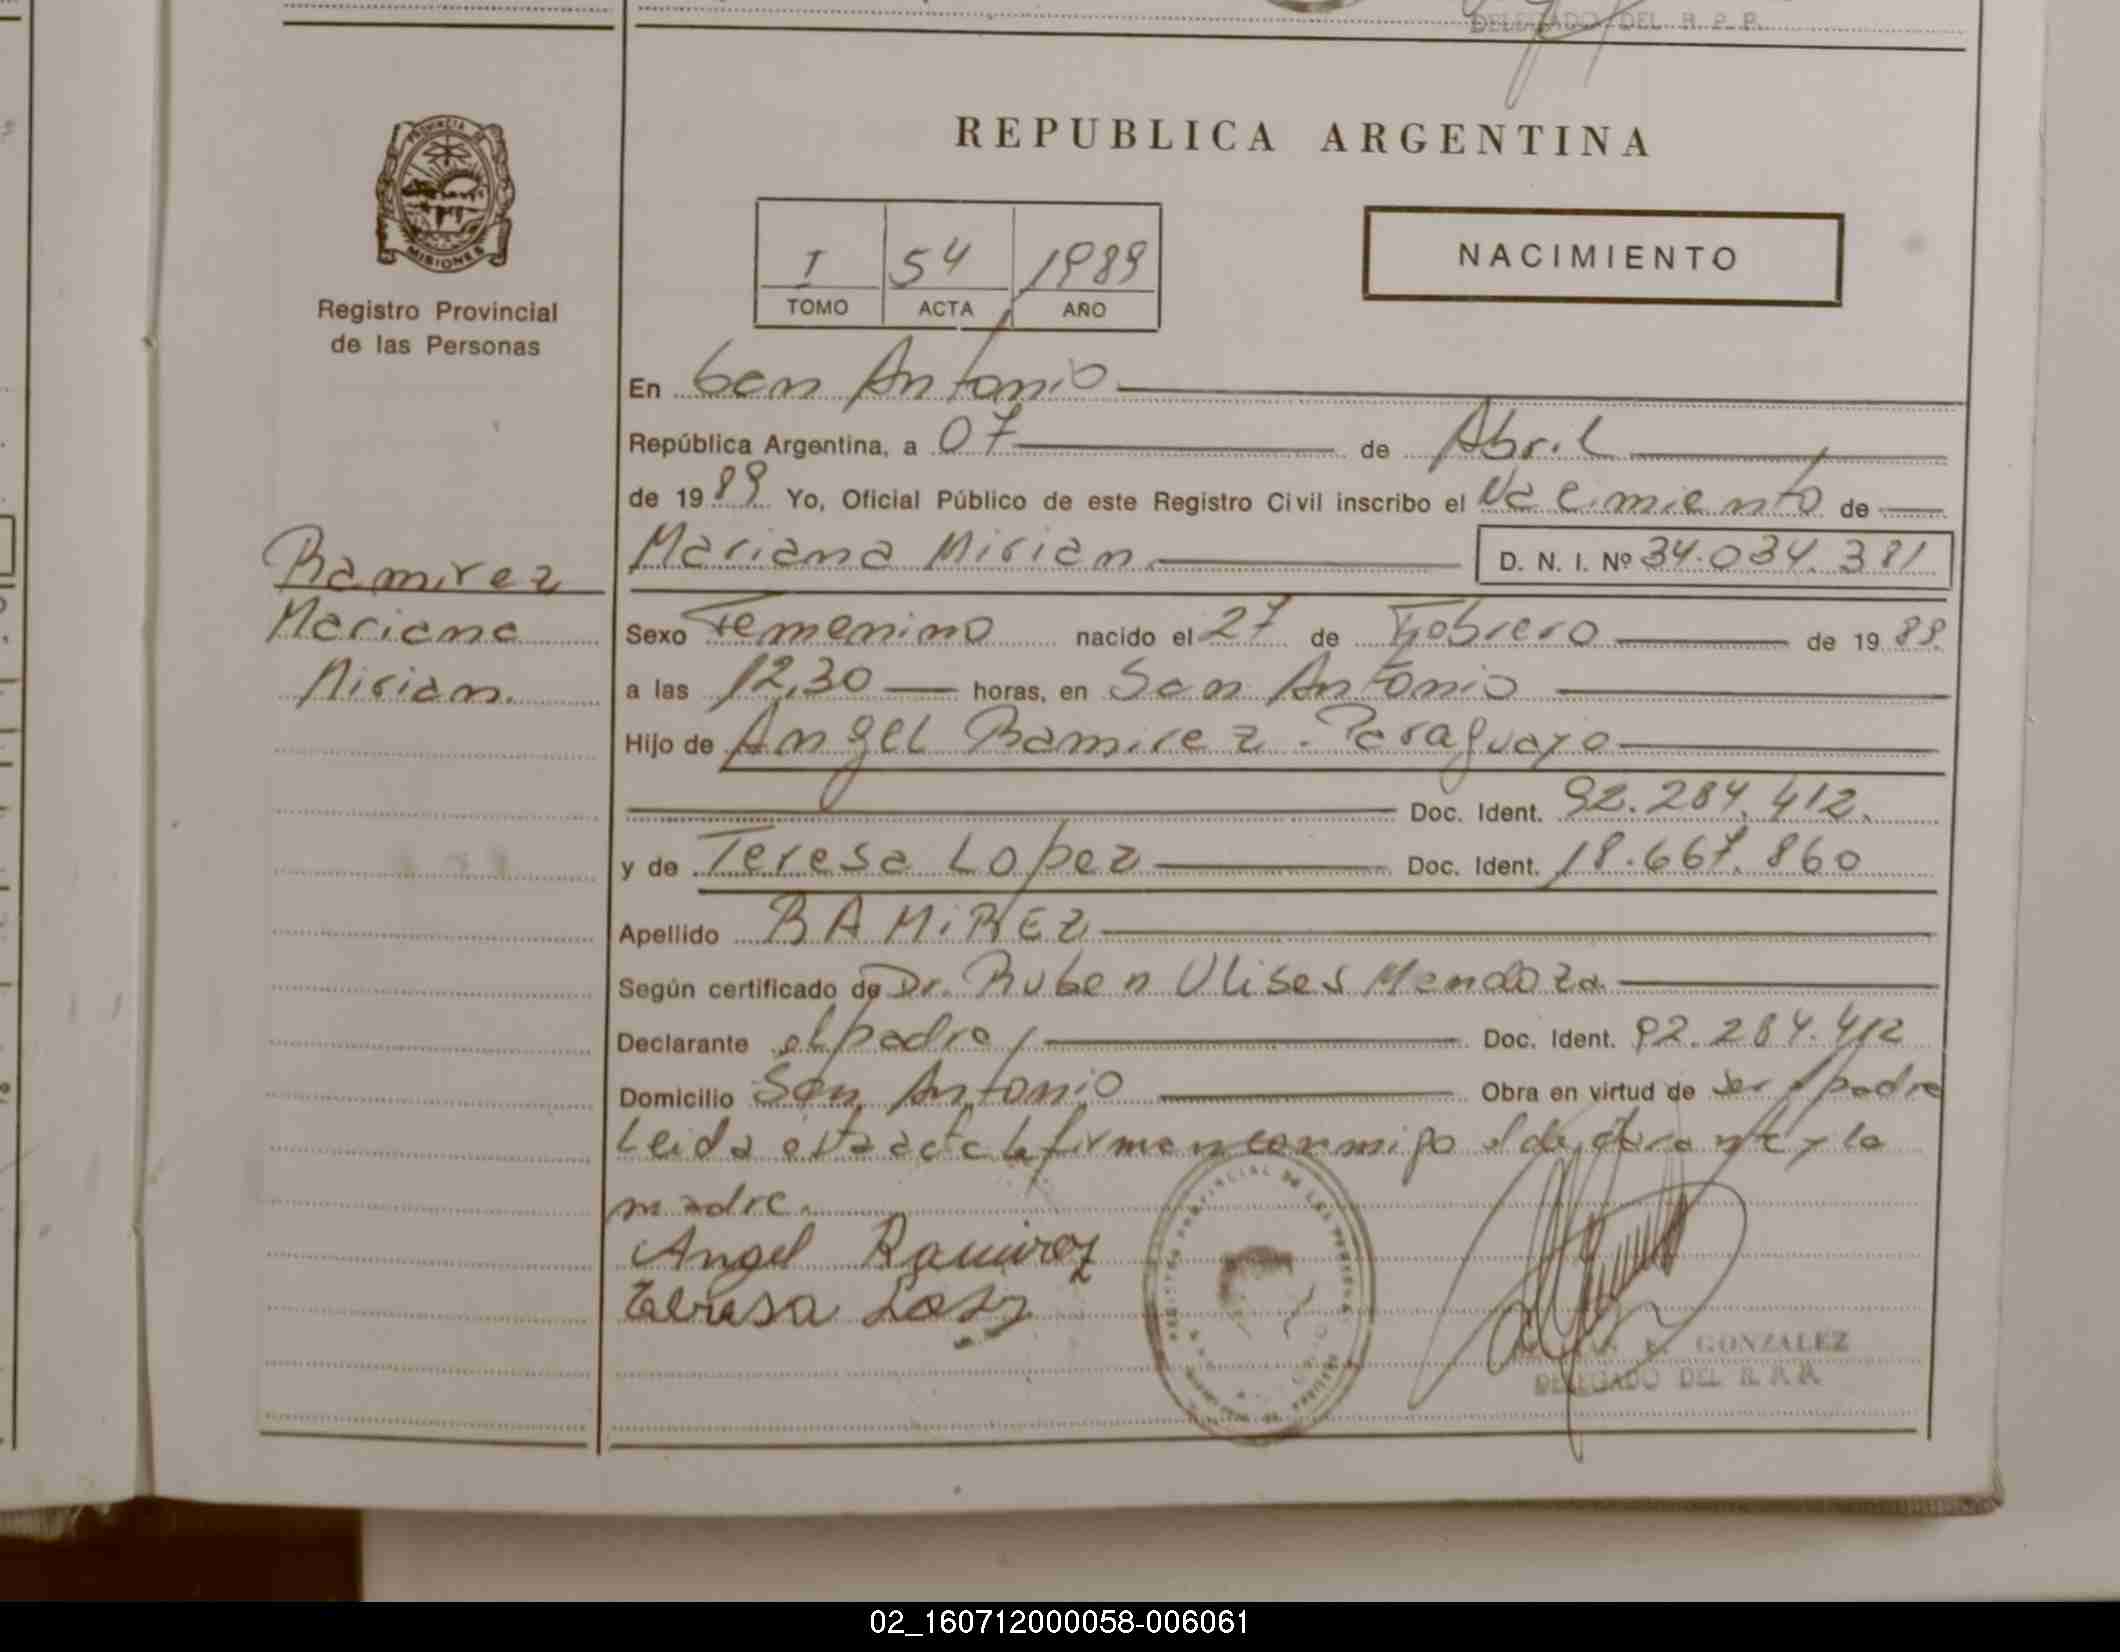 DELEGADO DEL R. P. P.
PROVINCIA DE
MISIONES
Registro Provincial
de las Personas
REPUBLICA ARGENTINA
I 54 1989
TOMO ACTA AÑO
NACIMIENTO
En San Antonio
República Argentina, a 07 de Abril
de 1989 Yo, Oficial Público de este Registro Civil inscribo el Nacimiento de
Mariana Mirian D. N. I. Nº 34.034.381
Ramirez
Mariana
Mirian.
Sexo Femenino nacido el 27 de Febrero de 1989.
a las 12,30 horas, en San Antonio
Hijo de Angel Ramirez. Paraguayo
Doc. Ident. 92.284.412.
y de Teresa Lopez Doc. Ident. 18.667.860
Apellido RAMiREZ
Según certificado de Dr. Ruben Ulises Mendoza
Declarante el padre Doc. Ident. 92.284.412
Domicilio San Antonio Obra en virtud de ser el padre
Leida esta acta la firman conmigo el declarante y la
madre.
Angel Ramirez
Teresa
GONZALEZ
DELEGADO DEL R. P. P.
02_160712000058-006061